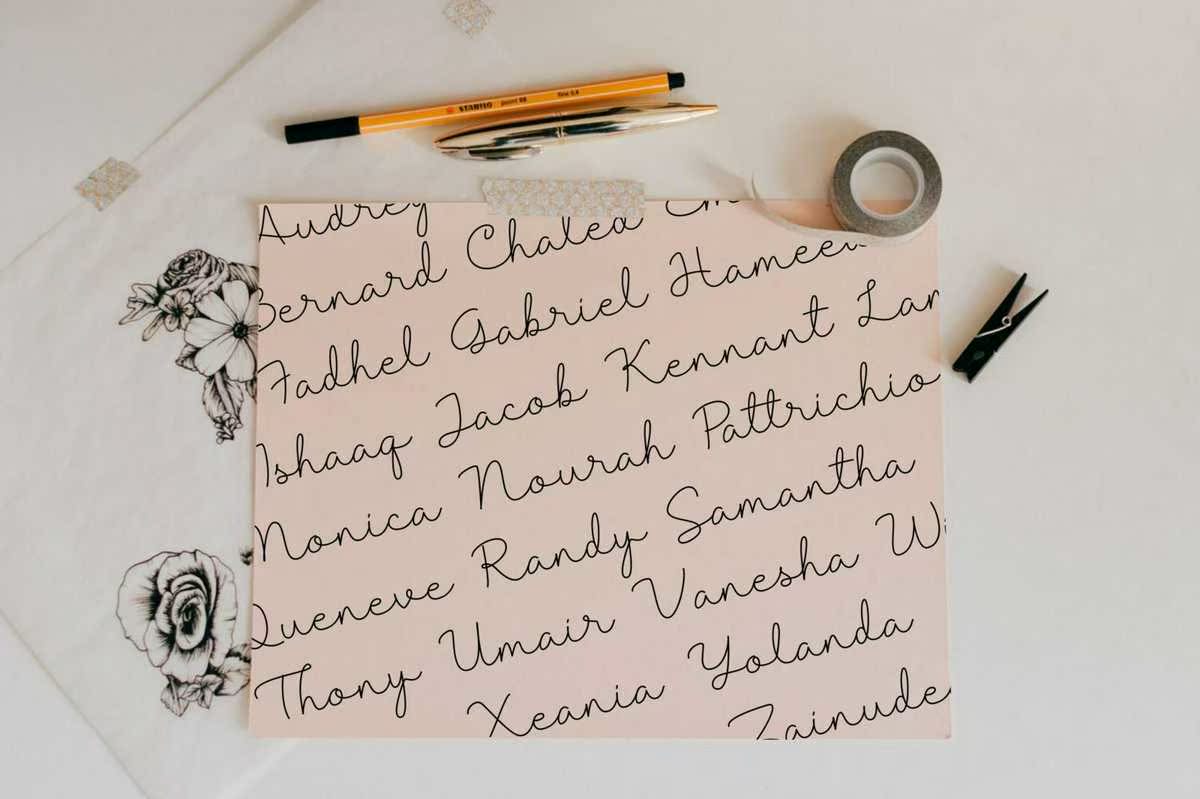 STABILO point 88 fine 0.4
Audrey
Bernard Chalea Em
Fadhel Gabriel Hameed
Ishaaq Jacob Kennant Lan
Monica Nourah Pattrichio
Queneve Randy Samantha
Thony Umair Vanesha Wi
Xeania Yolanda
Zainude